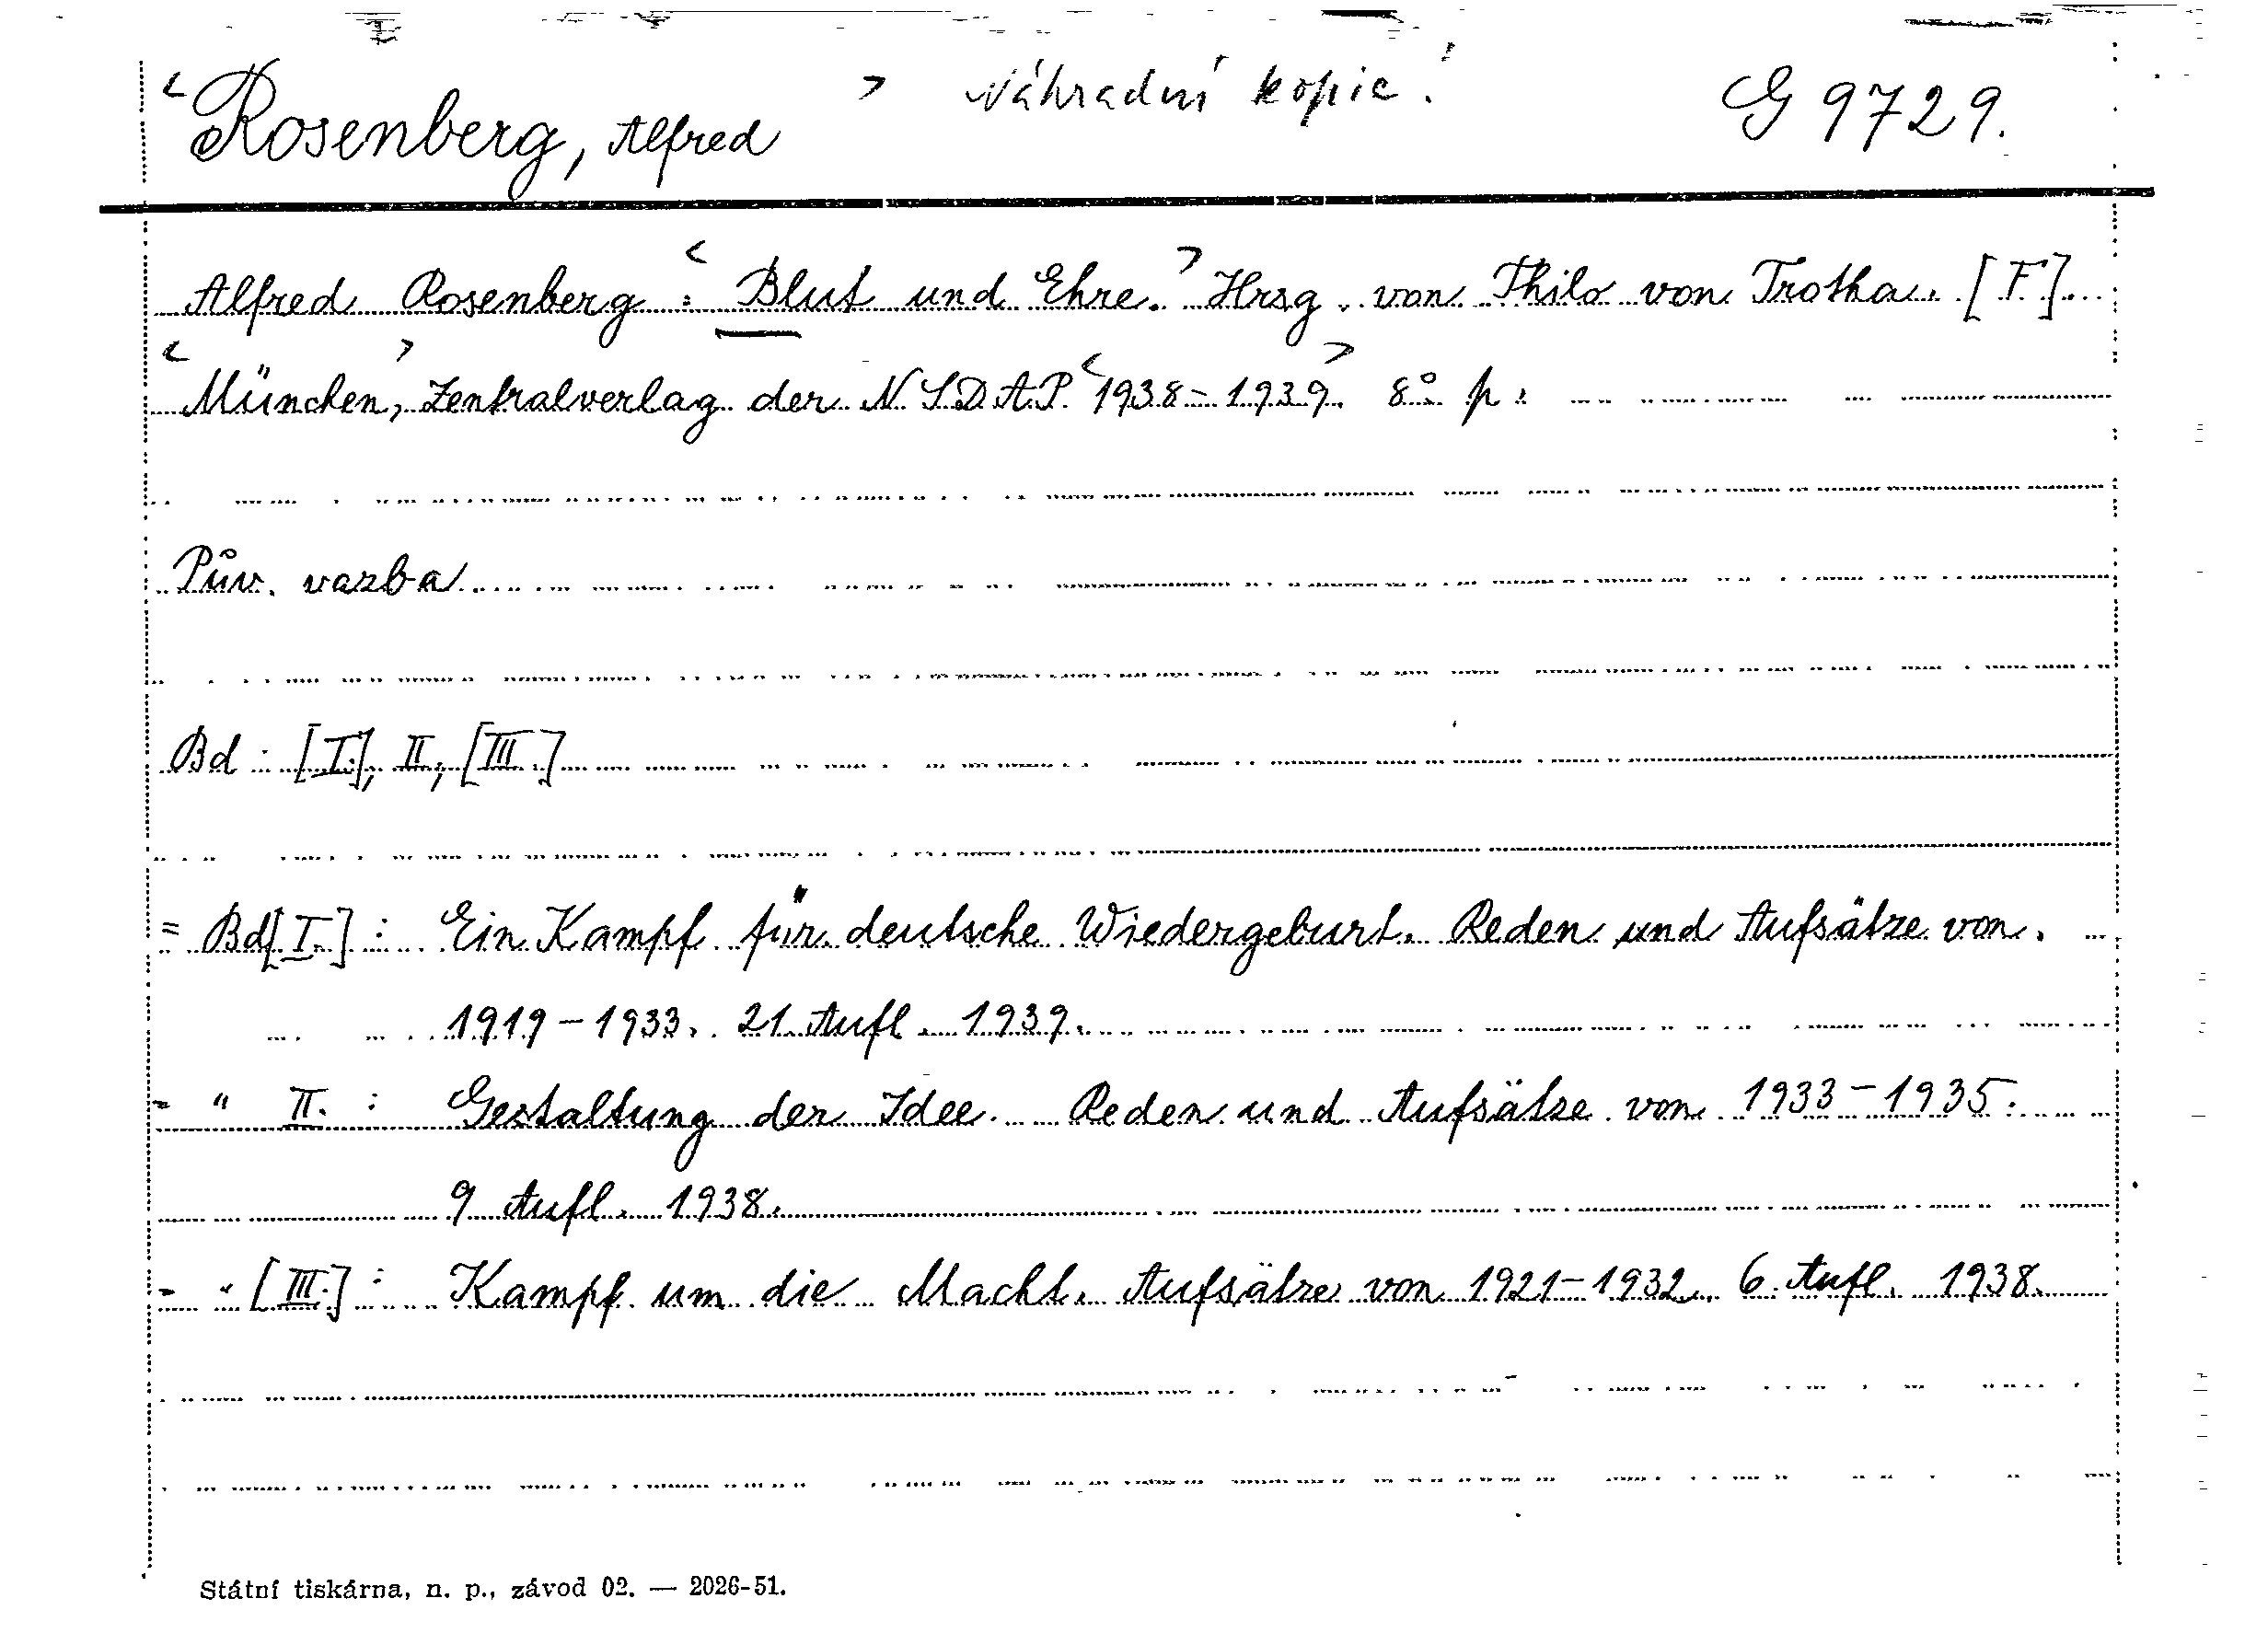 < Rosenberg, Alfred > Náhradní kopie! G 9729.
Alfred Rosenberg: < Blut und Ehre. > Hrsg. von Thilo von Trotha. [F].
< München, > Zentralverlag der N.S.D.A.P. < 1938-1939. > 8° p.
Pův. vazba.
Bd: [I.], II, [III.]
= Bd[I.]: Ein Kampf für deutsche Wiedergeburt. Reden und Aufsätze von.
1919-1933. 21 Aufl. 1939.
= " II.: Gestaltung der Idee. Reden und Aufsätze von 1933-1935.
9 Aufl. 1938.
= " [III.]: Kampf um die Macht. Aufsätze von 1921-1932. 6. Aufl. 1938.
Státní tiskárna, n. p., závod 02. — 2026-51.